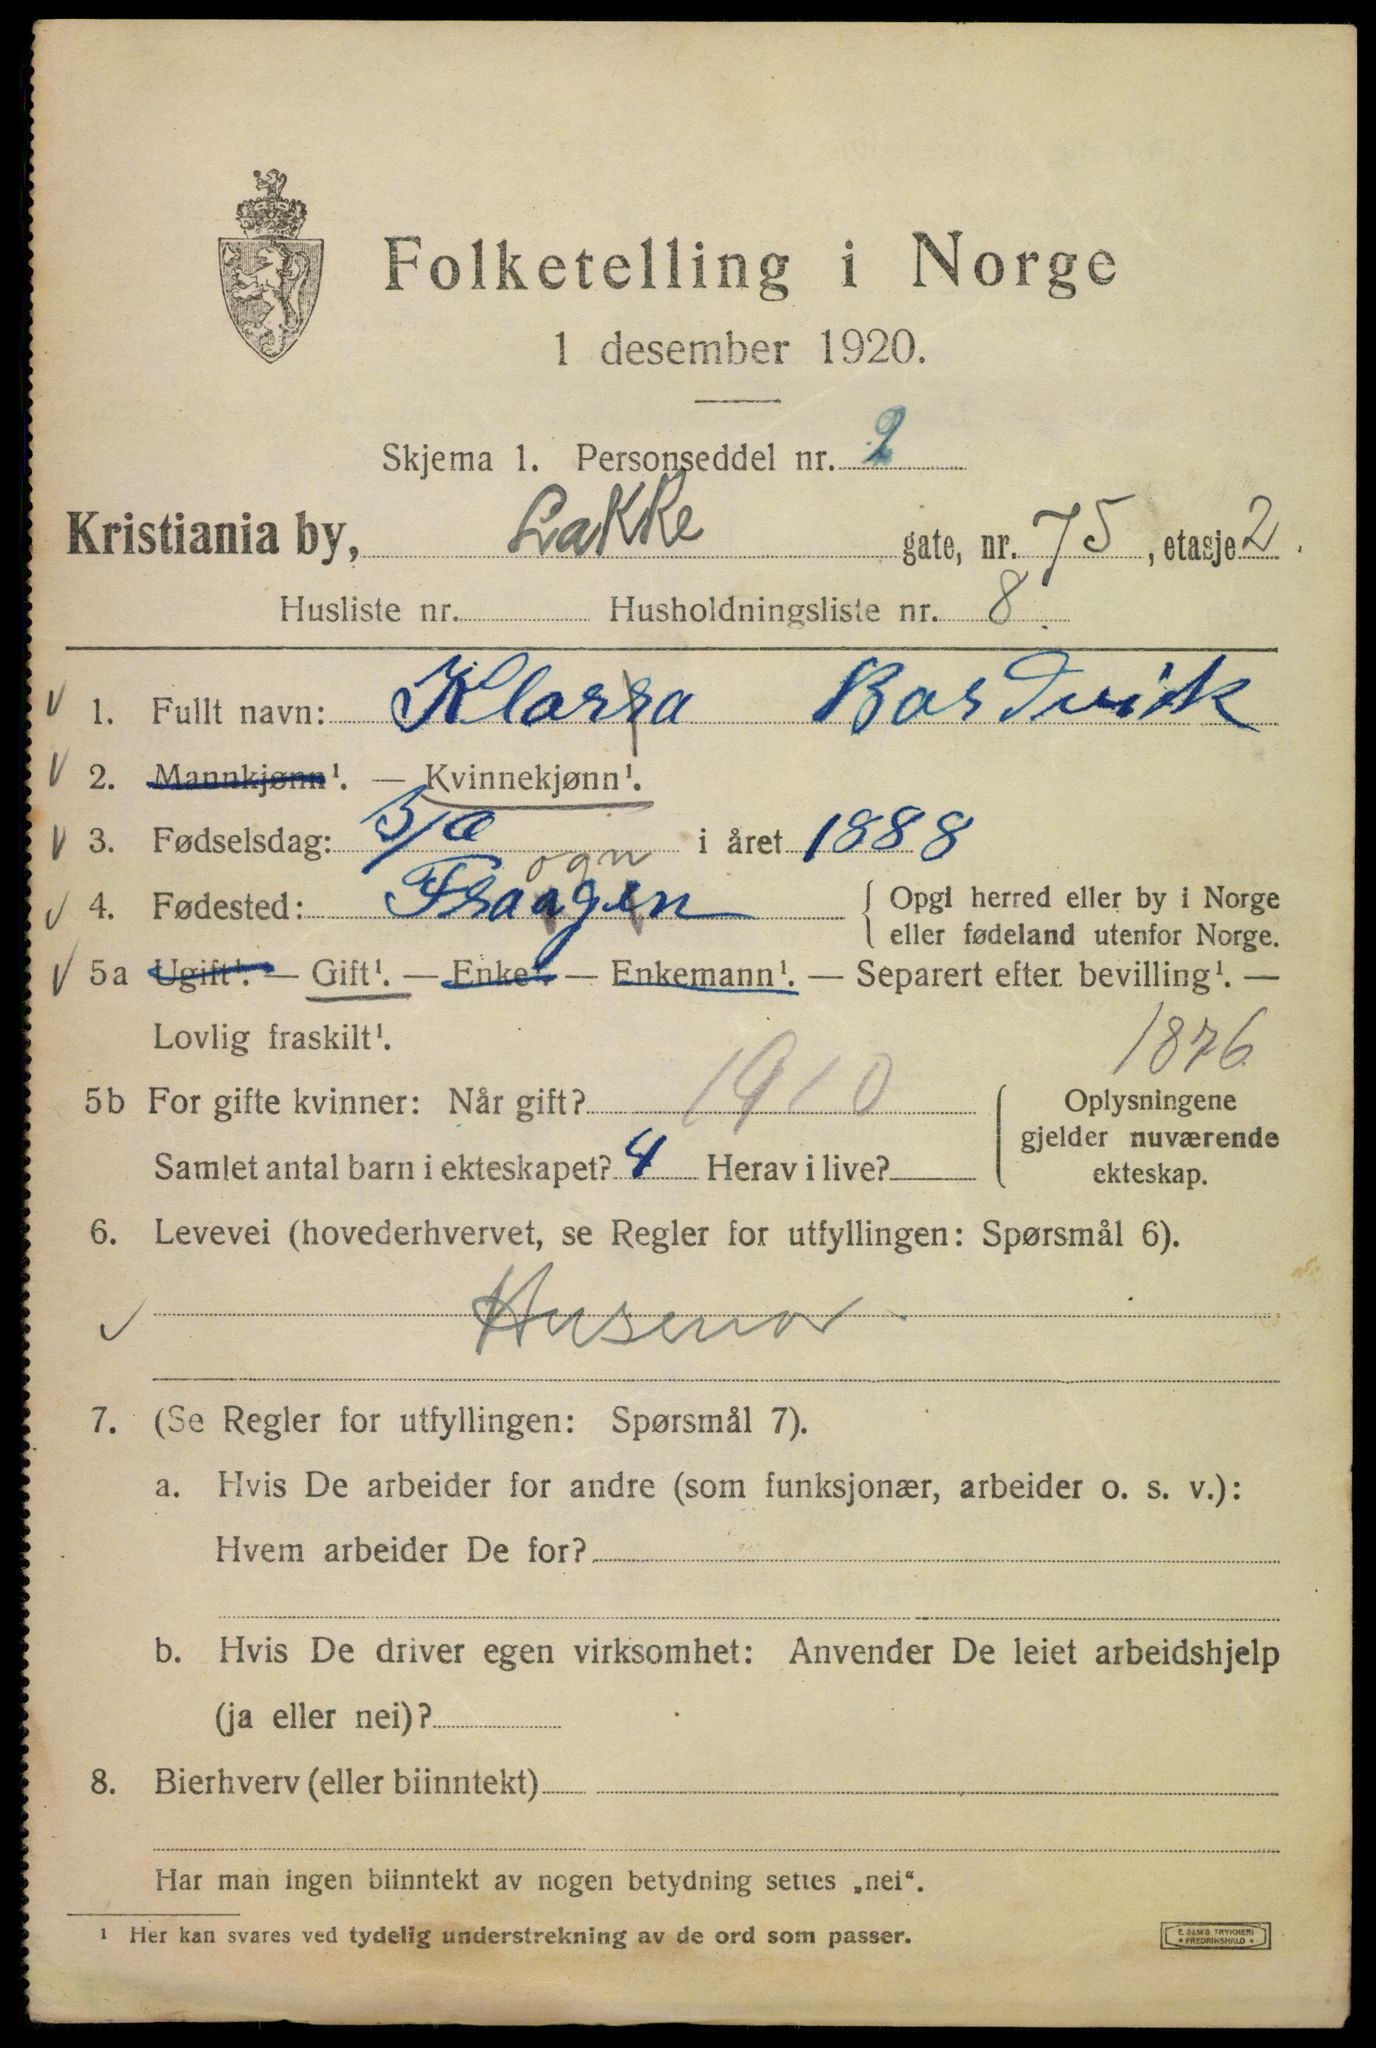 Folketelling i Norge
1 desember 1920.
Skjema 1. Personseddel nr. 2
Kristiania by, Lakke gate, nr. 75, etasje 2.
Husliste nr. Husholdningsliste nr. 8.
1. Fullt navn: Klarra Bordvik
2. Mannkjønn¹. — Kvinnekjønn¹.
3. Fødselsdag: i året 1888
ogn
4. Fødested: Fraagen { Opgi herred eller by i Norge
eller fødeland utenfor Norge.
5a Ugift¹. — Gift¹. — Enke¹. — Enkemann¹. — Separert efter bevilling¹. —
Lovlig fraskilt¹.
1876
5b For gifte kvinner: Når gift? 1910 { Oplysningene
gjelder nuværende
Samlet antal barn i ekteskapet? 4 Herav i live? ekteskap.
6. Levevei (hovederhvervet, se Regler for utfyllingen: Spørsmål 6).
Husmor
7. (Se Regler for utfyllingen: Spørsmål 7).
a. Hvis De arbeider for andre (som funksjonær, arbeider o. s. v.):
Hvem arbeider De for?
b. Hvis De driver egen virksomhet: Anvender De leiet arbeidshjelp
(ja eller nei)?
8. Bierhverv (eller biinntekt)
Har man ingen biinntekt av nogen betydning settes „nei“.
¹ Her kan svares ved tydelig understrekning av de ord som passer.
E. SEM'S TRYKKERI
* FREDRIKSHALD *